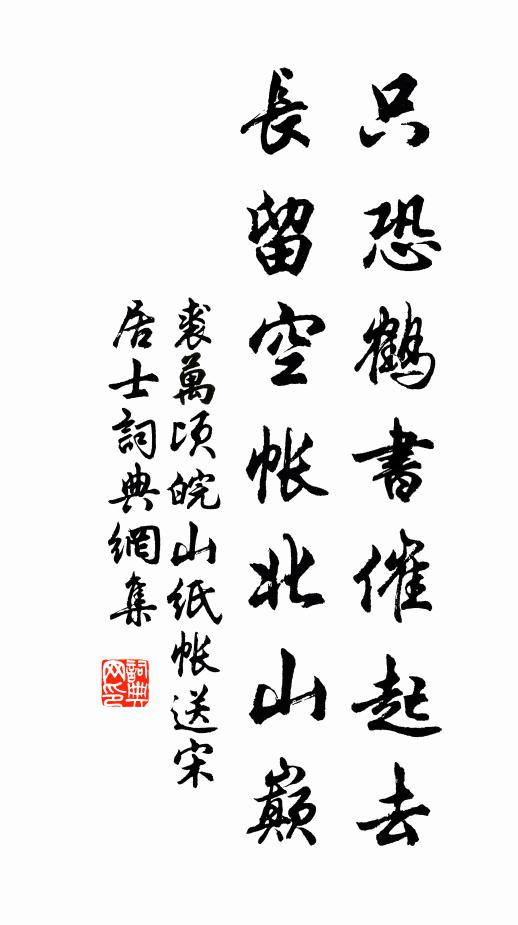 只恐鶴書催起去
長留空帳北山巔
裘萬頃皖山紙帳送宋
居士詞典網集
詞典
网印